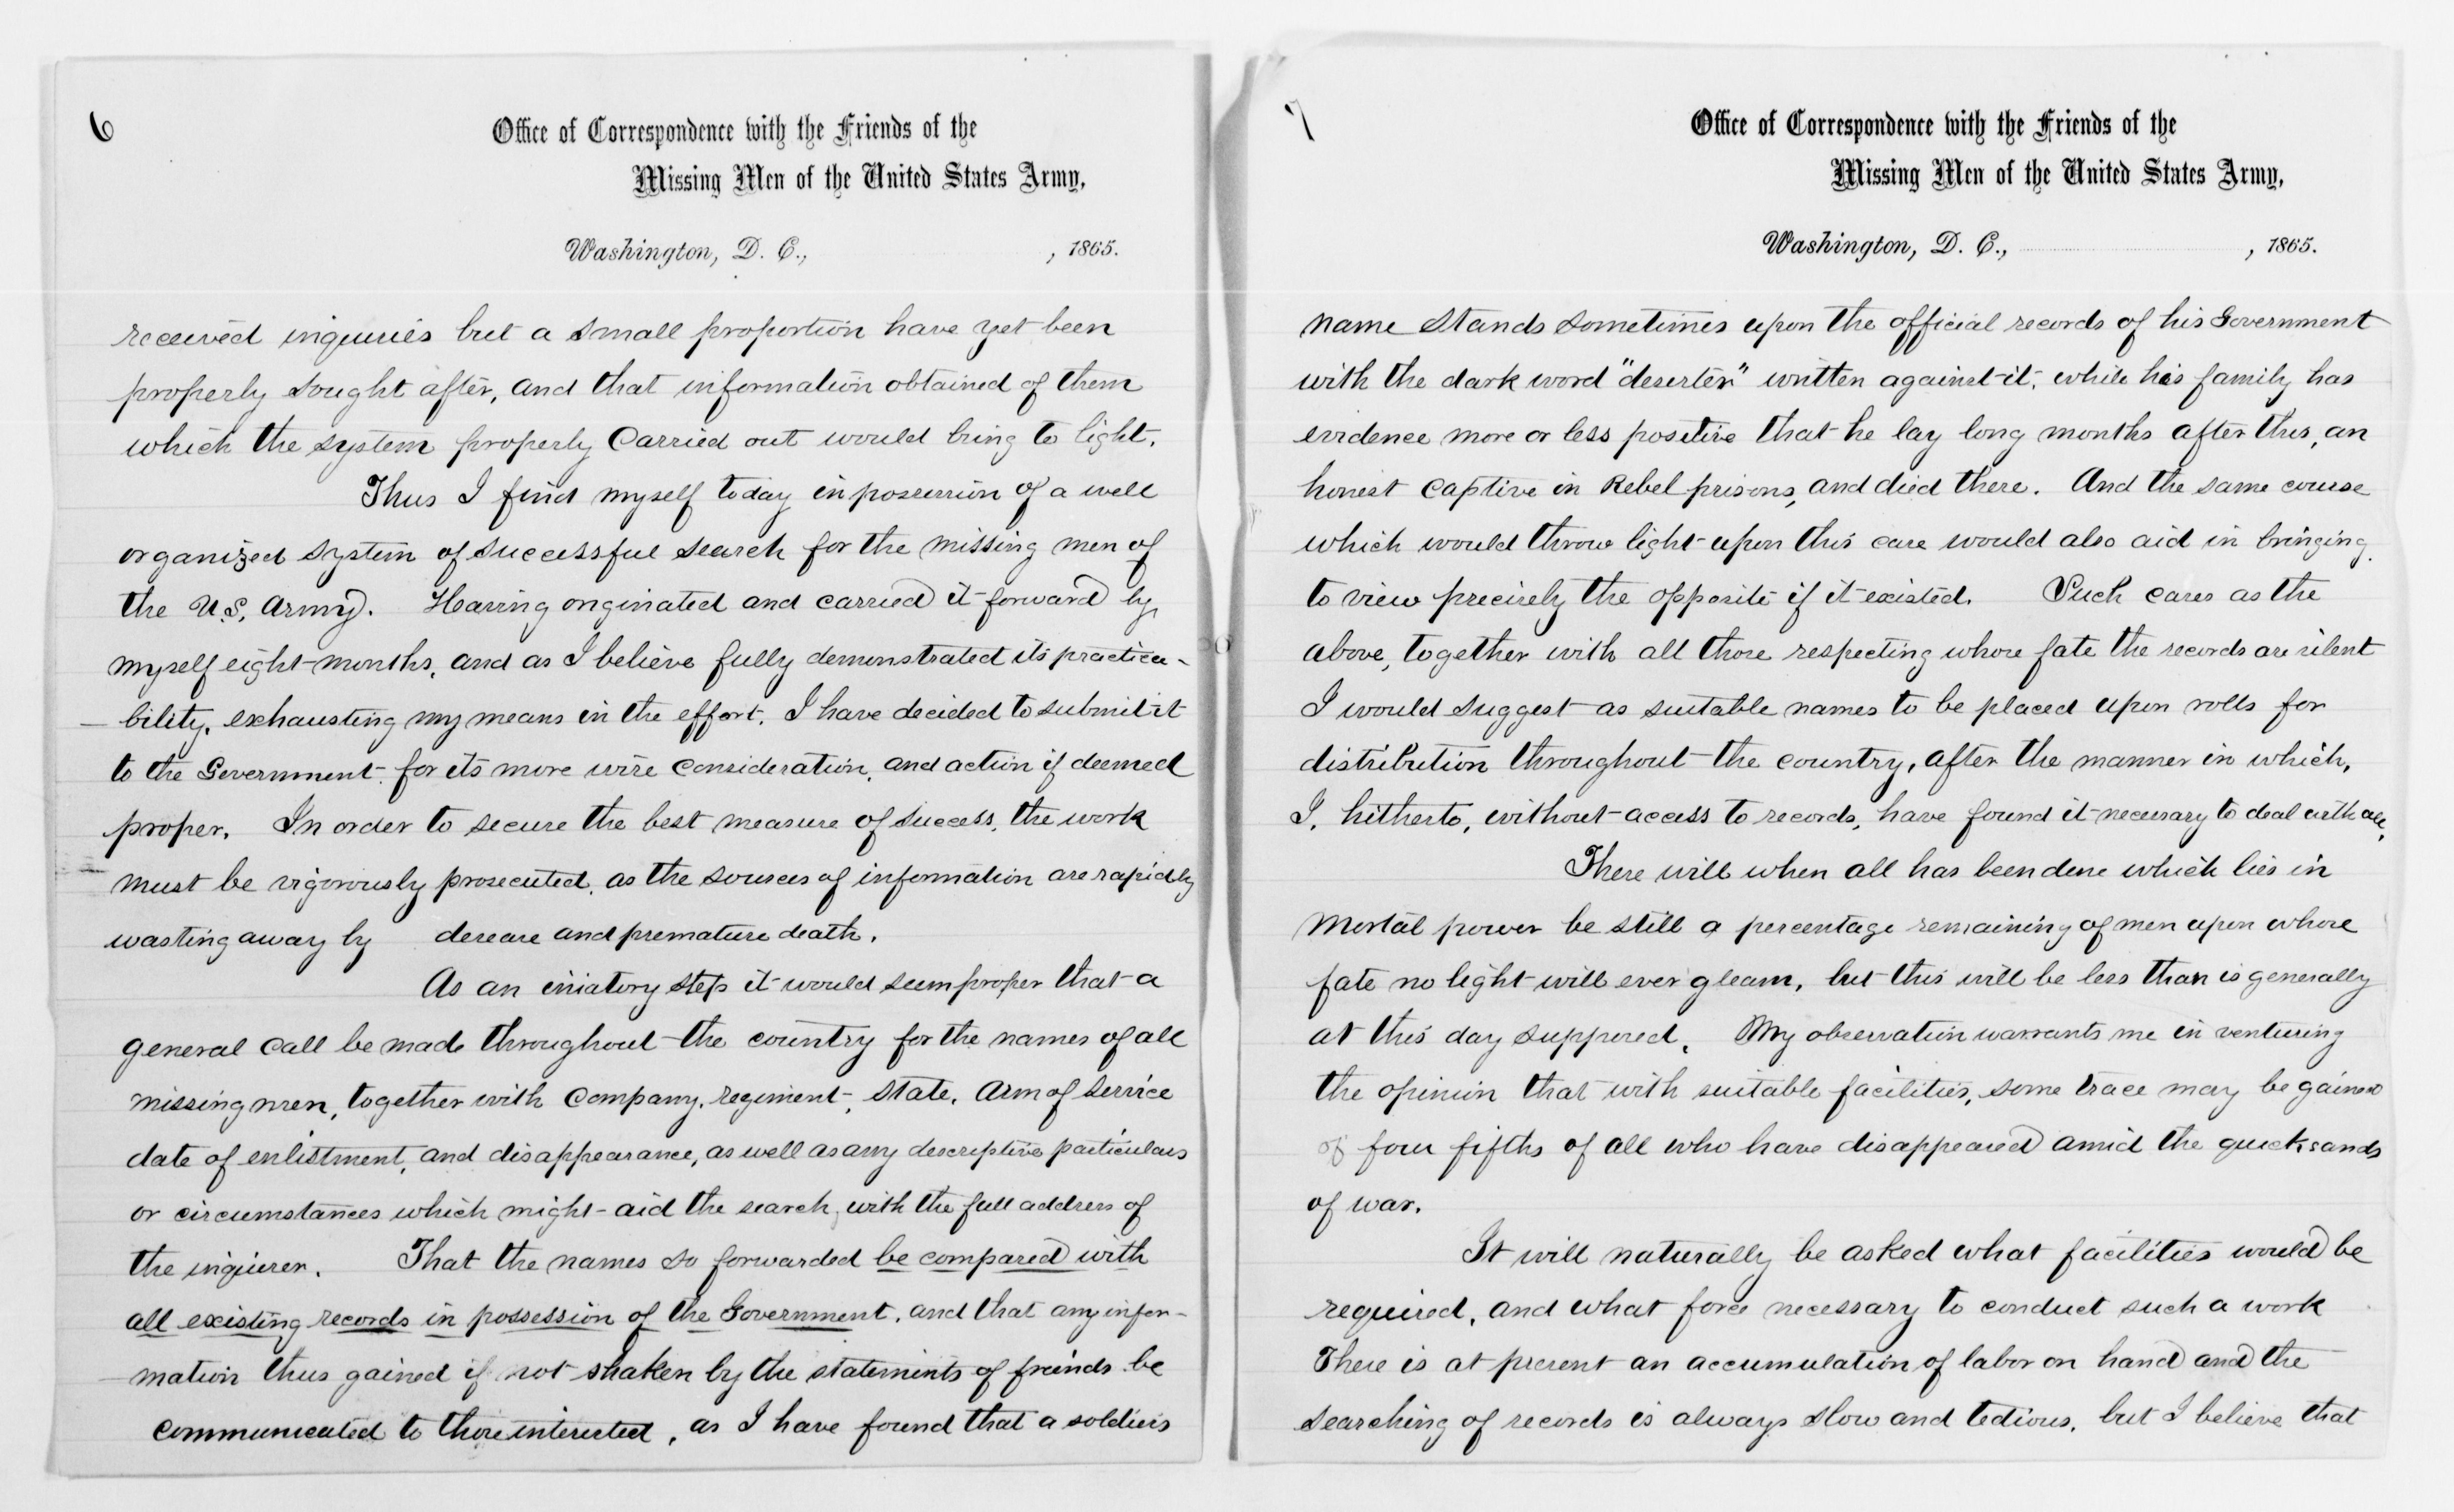 6
Office of Correspondence with the Friends of the
Missing Men of the United States Army,
Washington, D. C., , 1865.
received inquiries but a small proportion have yet been
properly sought after, and that information obtained of them
which the system properly carried out would bring to light.
Thus I find myself today in possession of a well
organized system of successful search for the missing men of
the U.S. Army. Having originated and carried it forward by
myself eight months, and as I believe fully demonstrated its practica-
-bility, exhausting my means in the effort. I have decided to submit it
to the Government, for its more wise consideration, and action if deemed
proper. In order to secure the best measure of success, the work
must be vigorously prosecuted, as the sources of information are rapidly
wasting away by disease and premature death.
As an iniatory step it would seem proper that a
general call be made throughout the country for the names of all
missing men, together with Company, regiment, State, Arm of Service
date of enlistment, and disappearance, as well as any descriptive particulars
or circumstances which might aid the search, with the full address of
the inquirer. That the names so forwarded be compared with
all existing records in possession of the Government, and that any infor-
mation thus gained if not shaken by the statements of freinds be
communicated to those interested, as I have found that a soldiers
7
Office of Correspondence with the Friends of the
Missing Men of the United States Army,
Washington, D. C., , 1865.
name stands sometimes upon the official records of his Government
with the dark word "deserter" written against it, while his family has
evidence more or less positive that he lay long months after this, an
honest captive in Rebel prisons, and died there. And the same course
which would throw light upon this case would also aid in bringing
to view precisely the opposite if it existed. Such cases as the
above, together with all those respecting whose fate the records are silent
I would suggest as suitable names to be placed upon rolls for
distribution throughout the country, after the manner in which,
I, hitherto, without access to records, have found it necessary to deal with all.
There will when all has been done which lies in
mortal power be still a percentage remaining of men upon whose
fate no light will ever gleam, but this will be less than is generally
at this day supposed. My observation warrants me in venturing
the opinion that with suitable facilities, some trace may be gained
of four fifths of all who have disappeared amid the quicksands
of war.
It will naturally be asked what facilities would be
required, and what force necessary to conduct such a work
There is at present an accumulation of labor on hand and the
searching of records is always slow and tedious, but I believe that